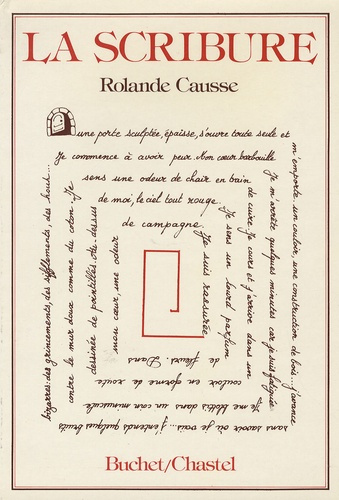 LA SCRIBURE
Rolande Causse
une porte sculptée, épaisse, s'ouvre toute seule et
m'emporte un couloir, une construction de bois. J'avance
sans savoir où je vais... j'entends quelques bruits
bizarres: des grincements, des sifflements, des hou...
Je commence à avoir peur. Mon cœur barbouille
Je m'arrête quelques minutes car je suis fatiguée.
Je me blottis dans un coin minuscule
contre le mur doux comme du coton. Je
sens une odeur de chair en bain
de cuire. Je cours et j'arrive dans un
couloir en forme de route
dessinée de pointillés. dessus
de moi, le ciel tout rouge.
Je sens un lourd parfum
de fleurs. Dans
mon cœur, une odeur
de campagne.
Je suis rassurée
Buchet/Chastel